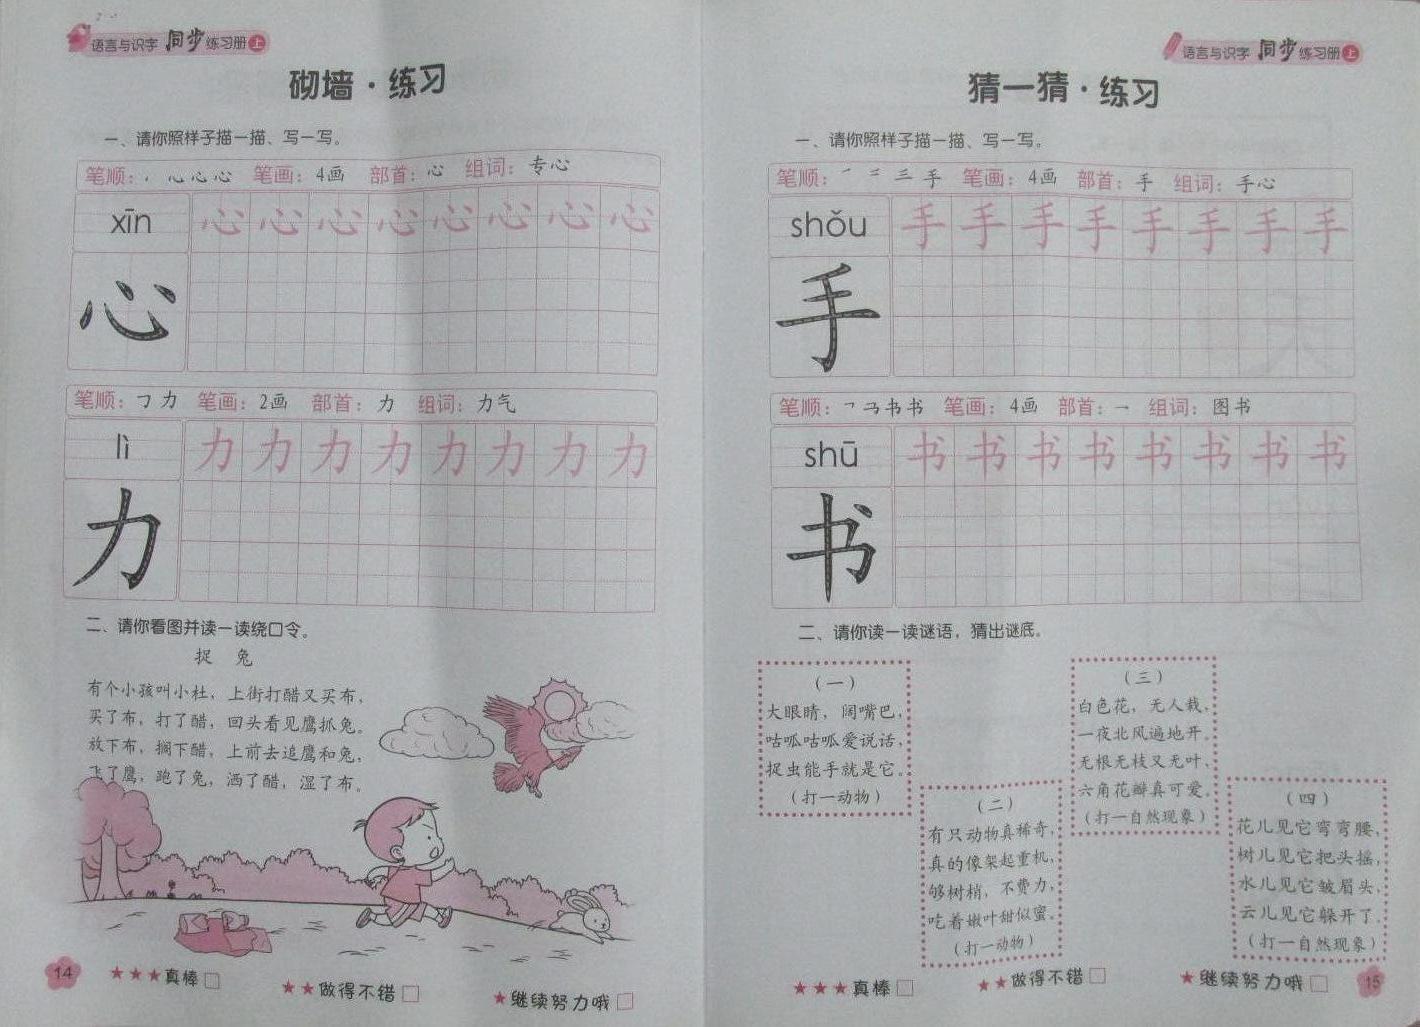 语言与识字 同步 练习册 上
砌墙·练习
一、请你照样子描一描、写一写。
笔顺： 心 心 心 笔画：4画 部首：心 组词：专心
xīn 心 心 心 心 心 心 心 心
心
笔顺：㇆ 力 笔画：2画 部首：力 组词：力气
lì 力 力 力 力 力 力 力 力
力
二、请你看图并读一读绕口令。
捉 兔
有个小孩叫小杜，上街打醋又买布，
买了布，打了醋，回头看见鹰抓兔。
放下布，搁下醋，上前去追鹰和兔，
飞了鹰，跑了兔，洒了醋，湿了布。
14
★★★真棒
★★做得不错
★继续努力哦
语言与识字 同步 练习册 上
猜一猜·练习
一、请你照样子描一描、写一写。
笔顺： 一 二 三 手 笔画：4画 部首：手 组词：手心
shǒu 手 手 手 手 手 手 手 手
手
笔顺： 书 书 笔画：4画 部首：一 组词：图书
shū 书 书 书 书 书 书 书 书
书
二、请你读一读谜语，猜出谜底。
（一）
大眼睛，阔嘴巴，
咕呱咕呱爱说话，
捉虫能手就是它。
（打一动物）
（二）
有只动物真稀奇，
真的像架起重机，
够树梢，不费力，
吃着嫩叶甜似蜜。
（打一动物）
（三）
白色花，无人栽，
一夜北风遍地开。
无根无枝又无叶，
六角花瓣真可爱。
（打一自然现象）
（四）
花儿见它弯弯腰，
树儿见它把头摇，
水儿见它皱眉头，
云儿见它躲开了。
（打一自然现象）
★★★真棒
★★做得不错
★继续努力哦
15